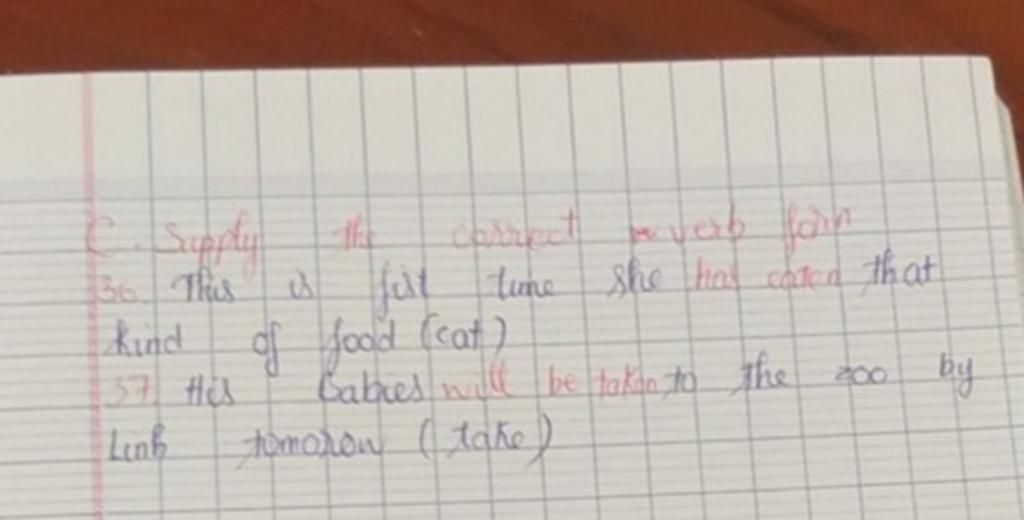 C. Supply the correct verb form
36 This is fist time she has eaten that
kind of food (eat)
37. His Babies will be taken to the zoo by
Linh tomorow (take)